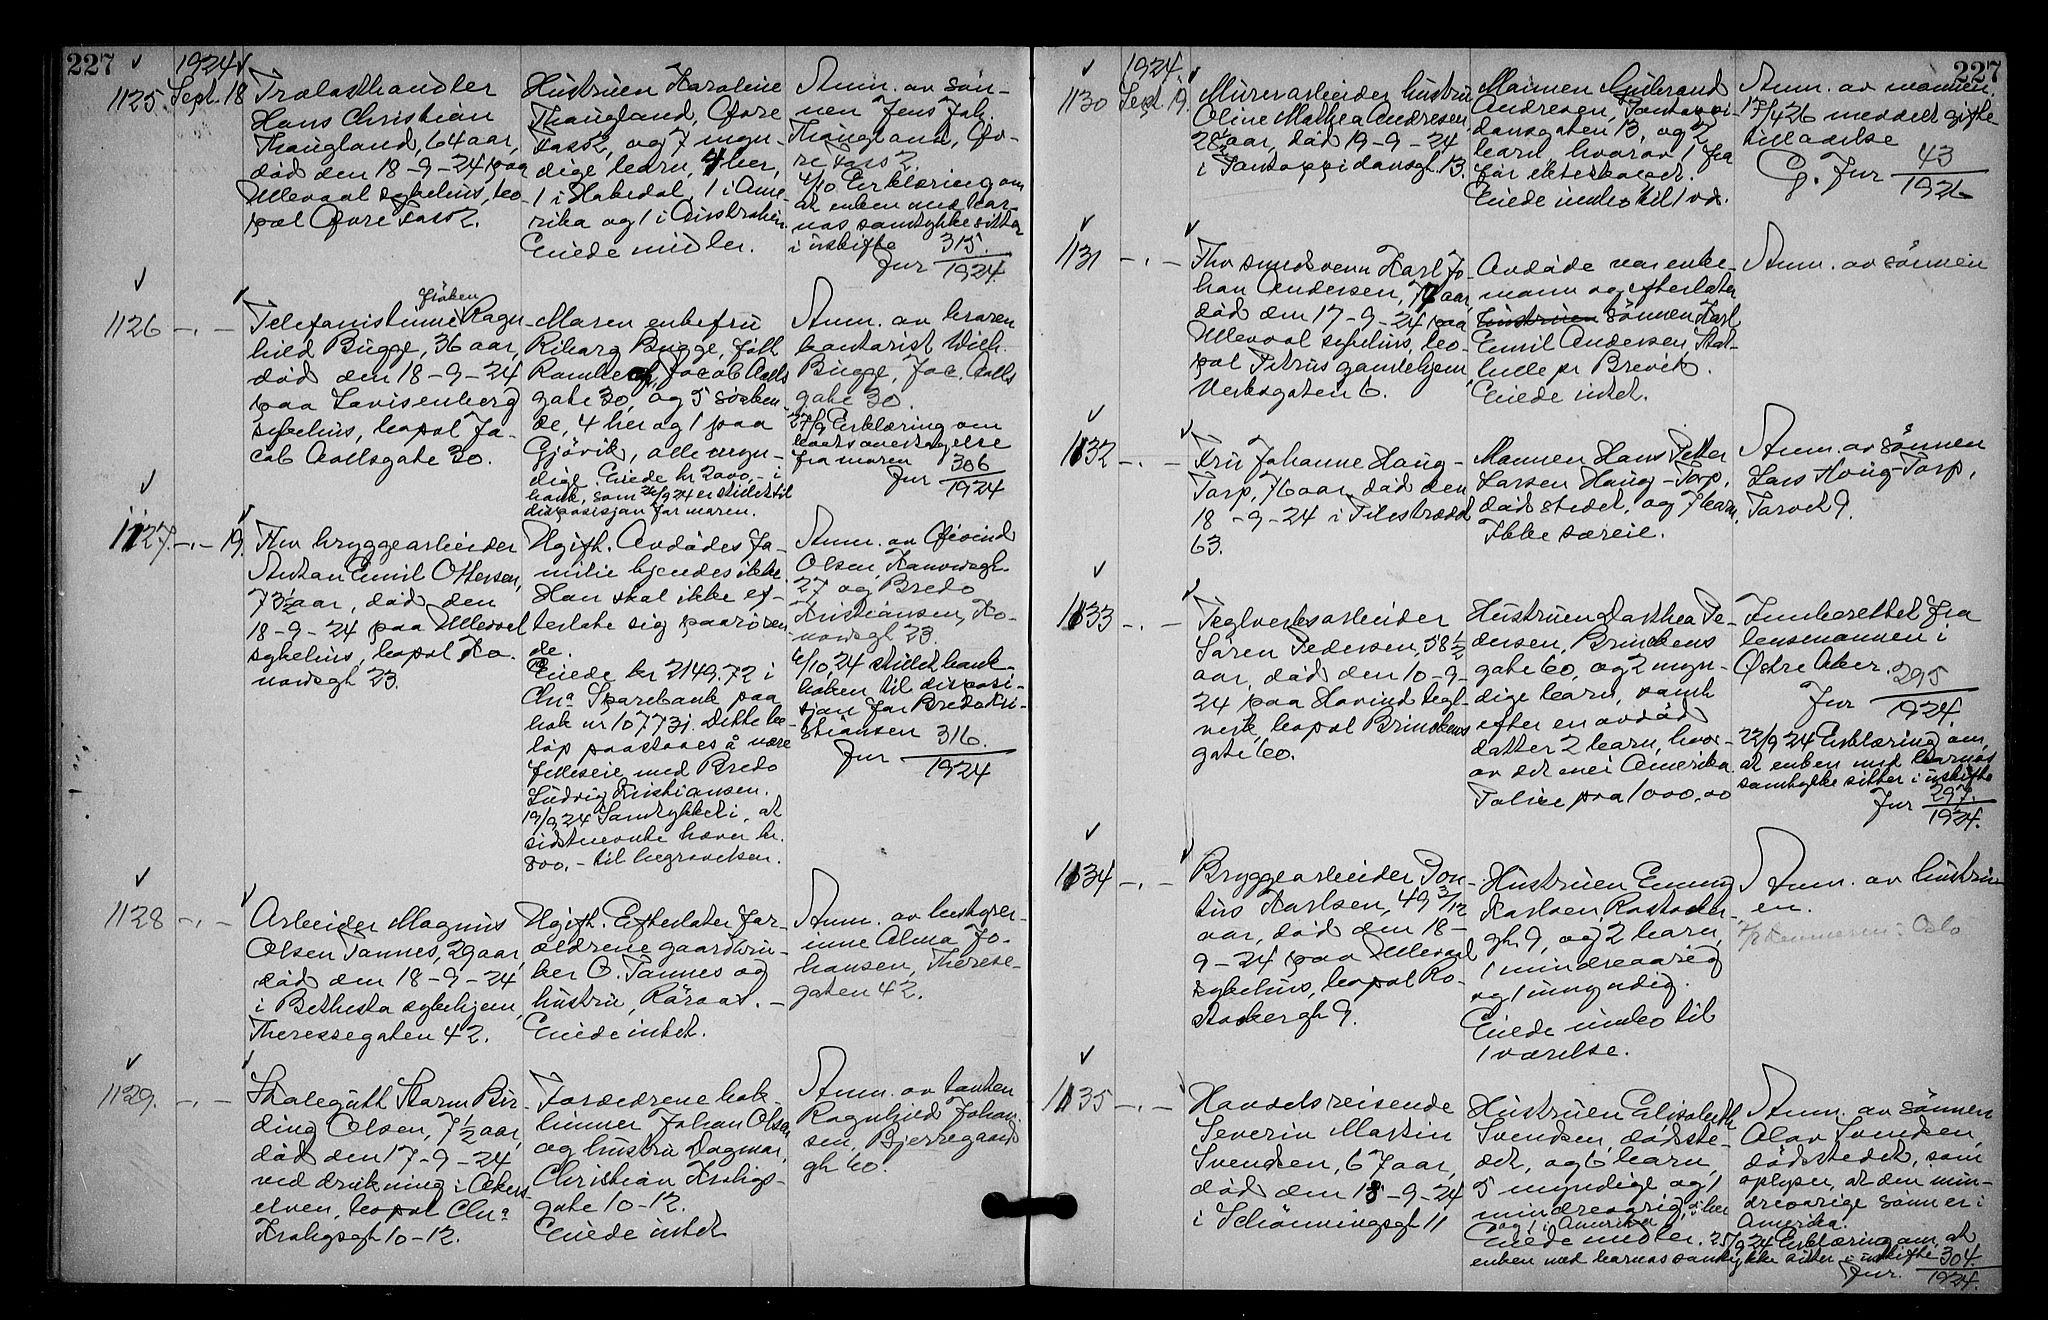 227
1924
1125. Sept. 18
Trælasthandler
Hans Christian
Thaugland, 64 aar,
død den 18-9-24 paa
Ullevaal sykehus, bo-
pæl Øvre Foss 2.
Hustruen Karoline
Thaugland, Øvre
Foss 2, og 7 myn-
dige barn, 4 her,
1 i Hakedal, 1 i Ame-
rika og 1 i Australien.
Eiede midler.
Anm. av søn-
nen Jens Joh.
Thaugland, Øv-
re Foss 2.
4/10 Erklæring om
at enken med bar-
nas samtykke sitter
i uskifte 315.
Jnr 1924.
1126 -"-
frøken
Telefonistinne Ragn-
hild Bugge, 36 aar,
død den 18-9-24
paa Lovisenberg
sykehus, bopæl Ja-
cob Aallsgate 30.
Moren enkefru
Rikarg Bugge, født
Ramberg, Jacob Aalls
gate 30, og 5 søsken-
de, 4 her og 1 paa
Gjøvik, alle myn-
dige. Eiede kr 2000,- i
bank, som 26/9 24 er stillet til
disposisjon for moren.
Anm. av broren
kontorist Wilh.
Bugge, Jac. Aalls
gate 30.
27/9 Erklæring om
boets overtagelse
fra moren 306
Jnr 1924
1127. -"- 19.
Fhv bryggearbeider
Anton Emil Ottersen,
73 1/2 aar, død den
18-9-24 paa Ullevål
sykehus, bopæl Ko-
nowsgt 23.
Ugift. Avdødes fa-
milie kjendes ikke.
Han skal ikke ef-
terlate sig paarøren-
de.
Eiede kr 2149.72 i
Chra Sparebank paa
bok nr 107731. Dette be-
løp paastaaes å være
fælleseie med Bredo
Ludvig Kristiansen.
19/9 24 Samtykket i, at
sidstnevnte hæver kr.
800,- til begravelsen.
Anm. av Øivind
Olsen, Konowsgt
27 og Bredo
Kristiansen, Ko-
nowsgt 23.
6/10, 24 stillet bank-
boken til disposi-
sjon for Bredo Kri-
stiansen 316.
Jnr 1924
1128 -"-
Arbeider Magnus
Olsen Tannes, 29 aar,
død den 18-9-24
i Bethesta sykehjem,
Theressegaten 42.
Ugift. Efterlater for-
ældrene gaardbru-
ker O. Tannes og
hustru, Røraas. -
Eiede intet.
Anm. av bestyrer-
inne Alma Jo-
hansen, Therese-
gaten 42.
1129. -"-
Skolegutt Storm Bir-
ding Olsen, 7 1/2 aar,
død den 17-9-24
ved drukning i Akers
elven, bopæl Chr.
Krohgsgt 10-12.
Forældrene bok-
binner Johan Olsen
og hustru Dagmar,
Christian Krohgs-
gate 10-12.
Eiede intet
Anm. av tanten
Ragnhild Johan-
sen, Bjerregaards
gt 60.
227
1924.
1130 Sept. 19.
Murerarbeider hustru
Oline Mathea Andresen,
28 1/2 aar, død 19-9-24
i Fantoppidansgt 13.
Mannen Gulbrand
Andresen, Pontoppi-
dansgaten 13, og 2
barn hvorav 1 fra
før ekteskapet.
Eiede innbo til 1 vær.
Anm. av mannen.
17/4 26 meddelt gifte-
tilladelse
G. Jnr 43
1926
1131 -"-
Fhv smedsvenn Karl Jo-
han Andersen, 77 aar,
død den 17-9-24 paa
Ullevaal sykehus, bo-
pæl Petrus gamlehjem,
Verksgaten 6.
Avdøde var enke-
mann og efterlater
hustruen sønnen Karl
Emil Andersen Stat-
helle pr Brevik.
Eiede intet.
Anm. av sønnen
1132 -"-
Fru Johanne Haug-
Torp, 76 aar, død den
18-9-24 i Pilestrædet
63.
Mannen Hans Petter
Larsen Haug-Torp,
død stedet, og 7 barn.
Ikke særeie.
Anm. av sønnen
Lars Haug-Torp,
Torvet 9.
1133 -"-
Teglverksarbeider
Søren Pedersen, 58 1/2
aar, død den 10-9-
24 paa Hovind tegl-
verk, bopæl Brinckens
gate 60.
Hustruen Dorthea Pe-
dersen, Brinckens
gate 60, og 2 myn-
dige barn, samt
efter en avdød
datter 2 barn, hvor-
av det ene i Amerika
Police paa 1000,00
Innberettet fra
lensmannen i
Østre Aker. 295
Jnr 1924.
22/9 24 Erklæring om,
at enken med barnas
samtykke sitter i uskifte
Jnr 297.
1924.
1134 -"-
Bryggearbeider Pon-
tus Karlsen, 49 3/12
aar, død den 18-
9-24 paa Ullevaal
sykehus, bopæl Ro-
stockergt 9.
Hustruen Emmy
Karlsen, Rostocker-
gt 9, og 2 barn,
1 mindreaarig
og 1 umyndig.
Eiede innbo til
1 værelse.
Anm. av hustru-
en.
Oslo
1135 -"-
Handelsreisende
Severin Martin
Svendsen, 67 aar,
død den 18-9-24
i Schønningsgt 11
Hustruen Elisabeth
Svendsen, dødste-
det, og 6 barn,
5 myndige og 1
mindreaarig, 5 her
og 1 i Amerika
Eiede midler. 25/9 24 Erklæring om, at
enken med barnas samtykke sitter i uskifte 304.
Jnr. 1924.
Anm. av sønnen
Olav Svendsen,
dødsstedet, som
oplyser, at den min-
dreaarige sønn er i
Amerika.